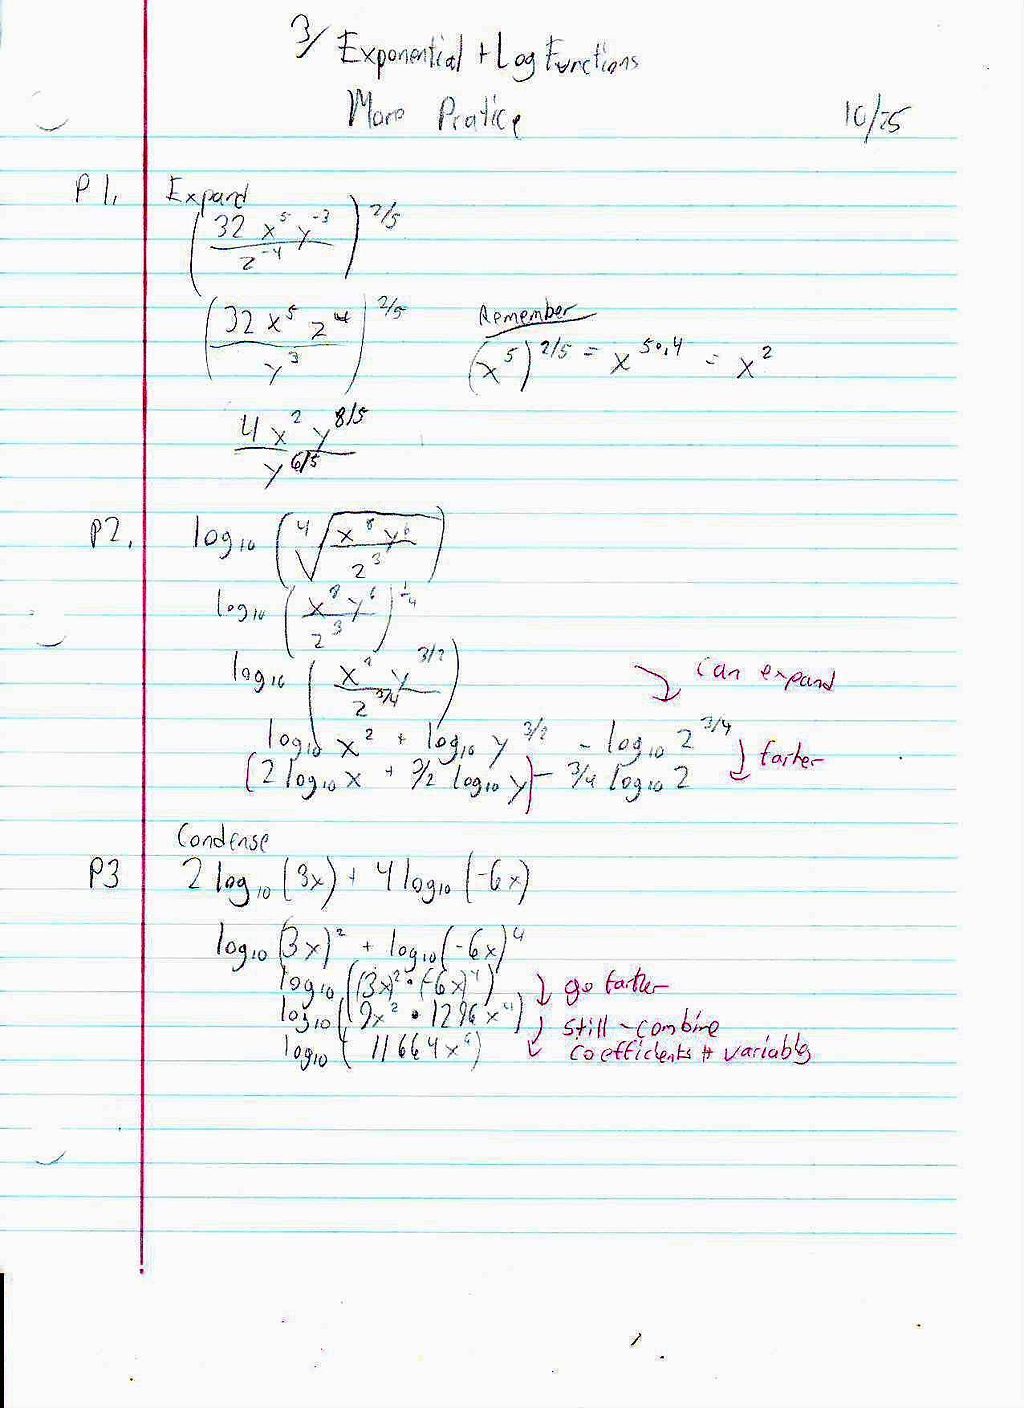 3/ Exponential + Log Functions
More Pratice
10/25
P1. Expand
(32 x⁵ y⁻³ / z⁻⁴)^(2/5)
(32 x⁵ z⁴ / y³)^(2/5)
Remember
(x⁵)^(2/5) = x^(5·.4) = x²
4 x² y^(8/5) / y^(6/5)
P2. log₁₀ (⁴√(x⁸ y⁶ / z³))
log₁₀ (x⁸ y⁶ / z³)^(1/4)
log₁₀ (x² y^(3/2) / z^(3/4))
can expand
log₁₀ x² + log₁₀ y^(3/2) - log₁₀ z^(3/4)
farther
(2 log₁₀ x + 3/2 log₁₀ y) - 3/4 log₁₀ z
Condense
P3 2 log₁₀ (3x) + 4 log₁₀ (-6x)
log₁₀ (3x)² + log₁₀ (-6x)⁴
log₁₀ ((3x)² • (-6x)⁴) go farther
log₁₀ (9x² • 1296 x⁴) still - combine
log₁₀ (11664x⁶) coefficients + variables